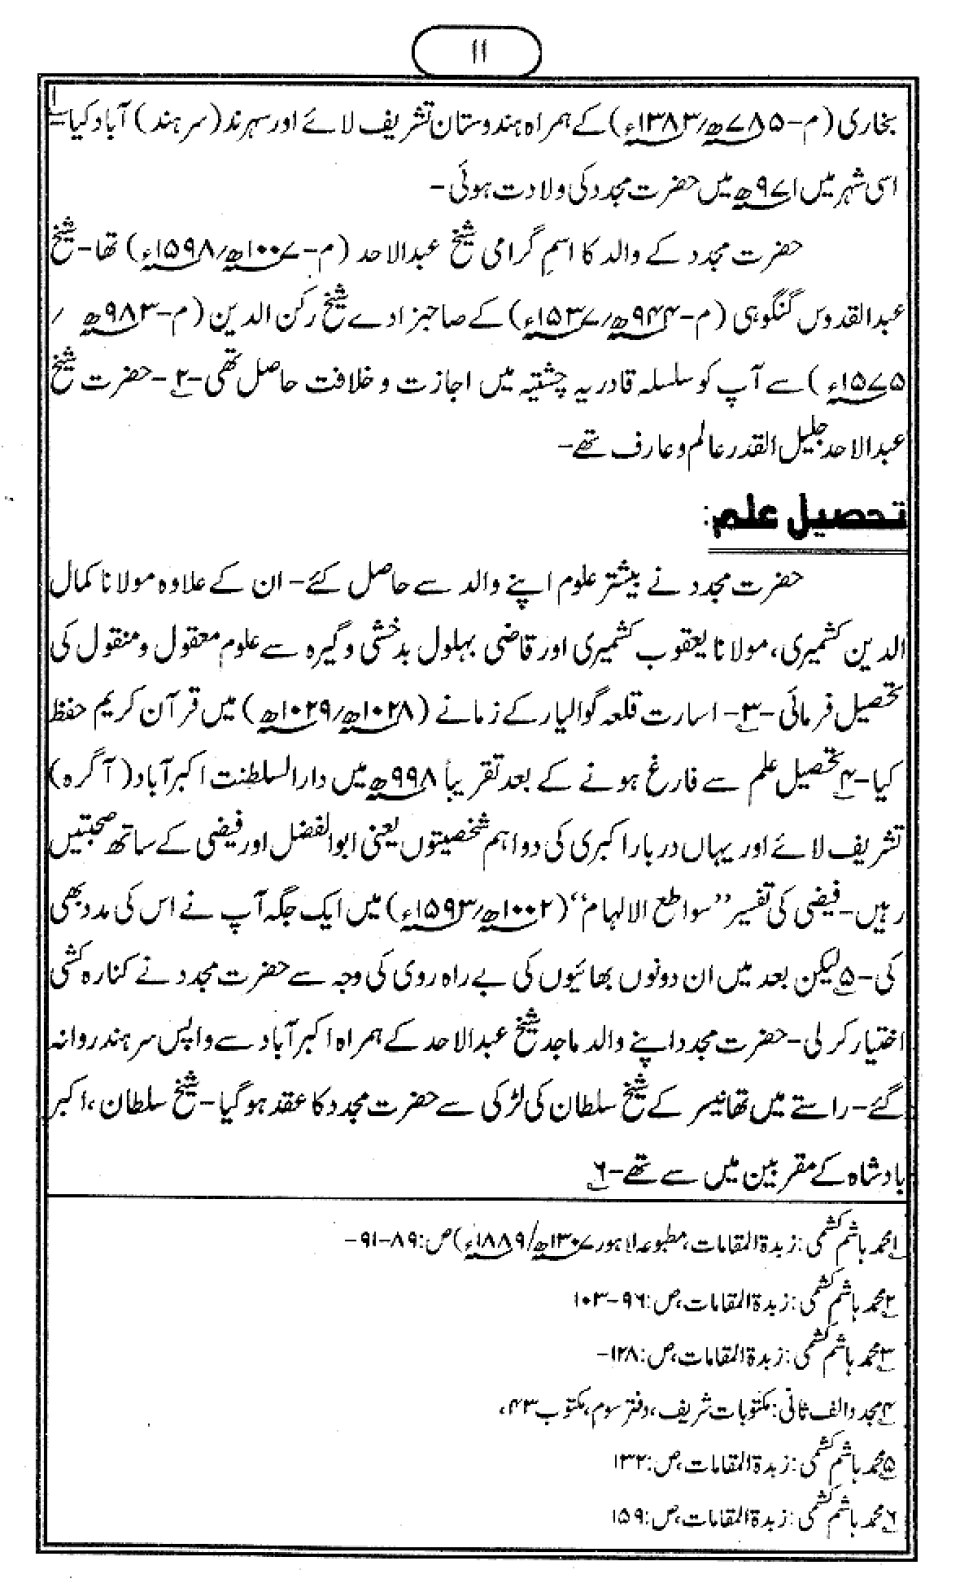 ۱۱
بخاری (م-۷۸۵ھ/۱۳۸۳ء) کے ہمراہ ہندوستان تشریف لائے اور سہرند (سرہند) آباد کیا۔۱
اسی شہر میں ۹۷۱ھ میں حضرت مجدد کی ولادت ہوئی-
حضرت مجدد کے والد کا اسمِ گرامی شیخ عبدالاحد (م-۱۰۰۷ھ/۱۵۹۸ء) تھا- شیخ
عبدالقدوس گنگوہی (م-۹۴۴ھ/۱۵۳۷ء) کے صاحبزادے شیخ رکن الدین (م-۹۸۳ھ /
۱۵۷۵ء) سے آپ کو سلسلہ قادریہ چشتیہ میں اجازت و خلافت حاصل تھی-۲- حضرت شیخ
عبدالاحد جلیل القدر عالم و عارف تھے-
تحصیل علم:
حضرت مجدد نے بیشتر علوم اپنے والد سے حاصل کئے- ان کے علاوہ مولانا کمال
الدین کشمیری، مولانا یعقوب کشمیری اور قاضی بہلول بدخشی وگیرہ سے علوم معقول و منقول کی
تحصیل فرمائی-۳- اسارت قلعہ گوالیار کے زمانے (۱۰۲۸ھ/۱۰۲۹ھ) میں قرآن کریم حفظ
کیا-۴ تحصیل علم سے فارغ ہونے کے بعد تقریباً ۹۹۸ھ میں دارالسلطنت اکبرآباد (آگرہ)
تشریف لائے اور یہاں دربار اکبری کی دو اہم شخصیتوں یعنی ابوالفضل اور فیضی کے ساتھ صحبتیں
رہیں- فیضی کی تفسیر ’’سواطع الالہام‘‘ (۱۰۰۲ھ/۱۵۹۳ء) میں ایک جگہ آپ نے اس کی مدد بھی
کی-۵ لیکن بعد میں ان دونوں بھائیوں کی بے راہ روی کی وجہ سے حضرت مجدد نے کنارہ کشی
اختیار کرلی- حضرت مجدد اپنے والد ماجد شیخ عبدالاحد کے ہمراہ اکبرآباد سے واپس سرہند روانہ
گئے- راستے میں تھانیسر کے شیخ سلطان کی لڑکی سے حضرت مجدد کا عقد ہوگیا- شیخ سلطان، اکبر
بادشاہ کے مقربین میں سے تھے-۶
۱ محمد ہاشم کشمی: زبدۃ المقامات، مطبوعہ لاہور ۱۳۰۷ھ/۱۸۸۹ء) ص:۸۹-۹۱-
۲ محمد ہاشم کشمی: زبدۃ المقامات، ص:۹۶-۱۰۳
۳ محمد ہاشم کشمی: زبدۃ المقامات، ص:۱۲۸-
۴ مجدد الف ثانی: مکتوبات شریف، دفتر سوم، مکتوب ۴۳،
۵ محمد ہاشم کشمی: زبدۃ المقامات، ص:۱۳۲
۶ محمد ہاشم کشمی: زبدۃ المقامات، ص:۱۵۹